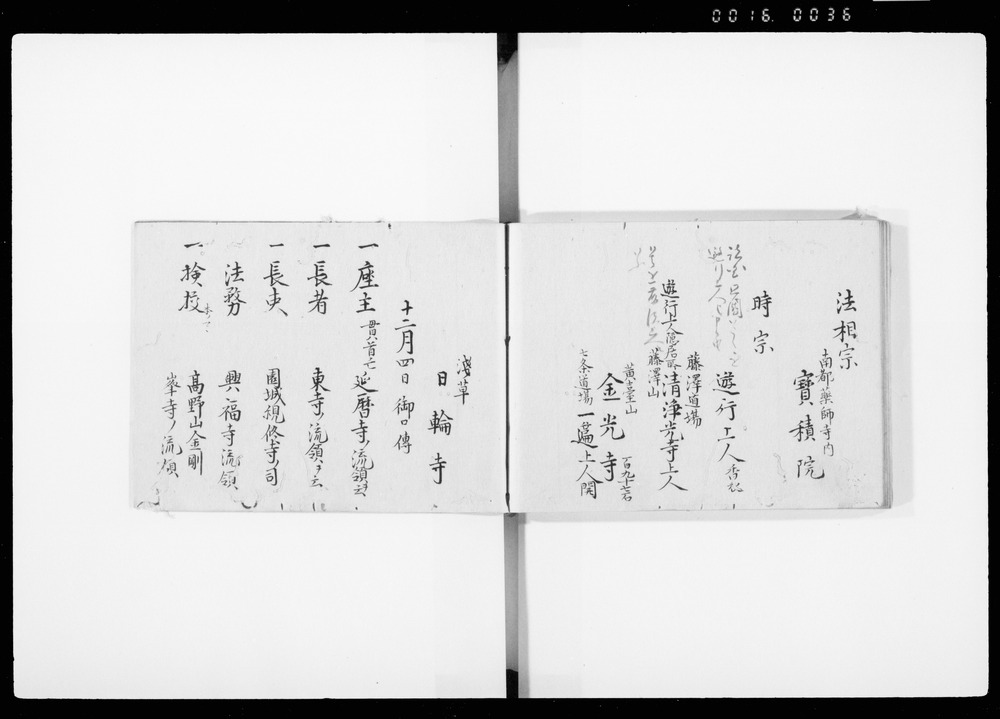 0016. 0036
法相宗
南都藥師寺内
寶積院
時宗
遊行上人
藤澤道場
遊行上人隠居所
清浄光寺上人
藤澤山
黄臺山
金光寺
百九十七石
七条道場
一遍上人開
淺草
日輪寺
十二月四日御口傳
一座主
延暦寺ノ流領ヲ云
一長者 東寺ノ流領ヲ云
一長吏
法務 興福寺流領
一検校
高野山金剛
峯寺ノ流領